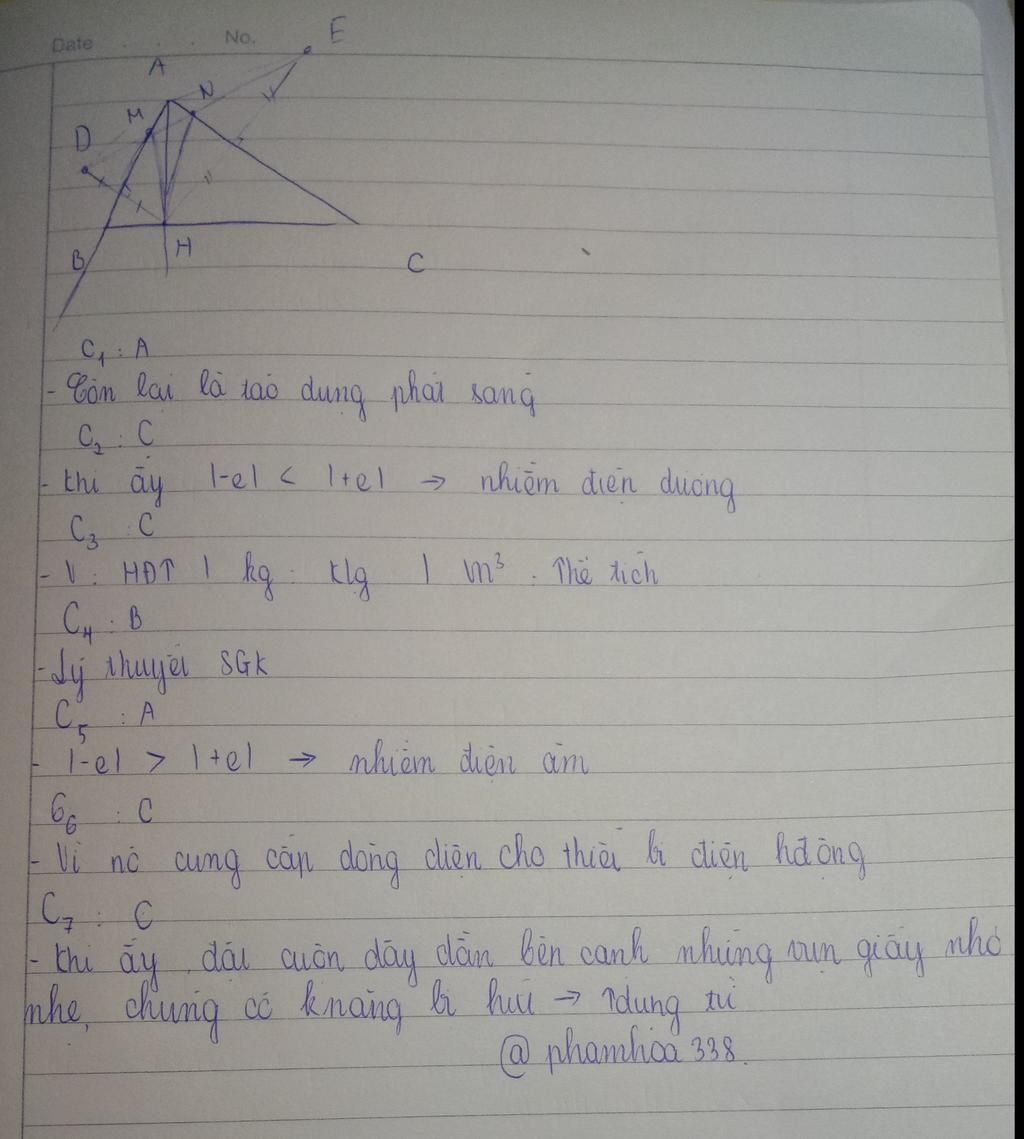 Date . . . No.
E
A
N
M
D
B
H
C
C1 : A
- Còn lại là tác dụng phát sáng
C2 : C
- Khi ấy |-e| < |+e| → nhiễm điện dương
C3 : C
- V : HĐT | kg : klg | m³ : Thể tích
C4 : B
- Lý thuyết SGK
C5 : A
- |-e| > |+e| → nhiễm điện âm
C6 : C
- Vì nó cung cấp dòng điện cho thiết bị điện hđộng
C7 : C
- Khi ấy, đặt cuộn dây dẫn bên cạnh những vụn giấy nhỏ
nhẹ, chúng có knăng bị hút → Tdụng từ
@ phamhoa338.